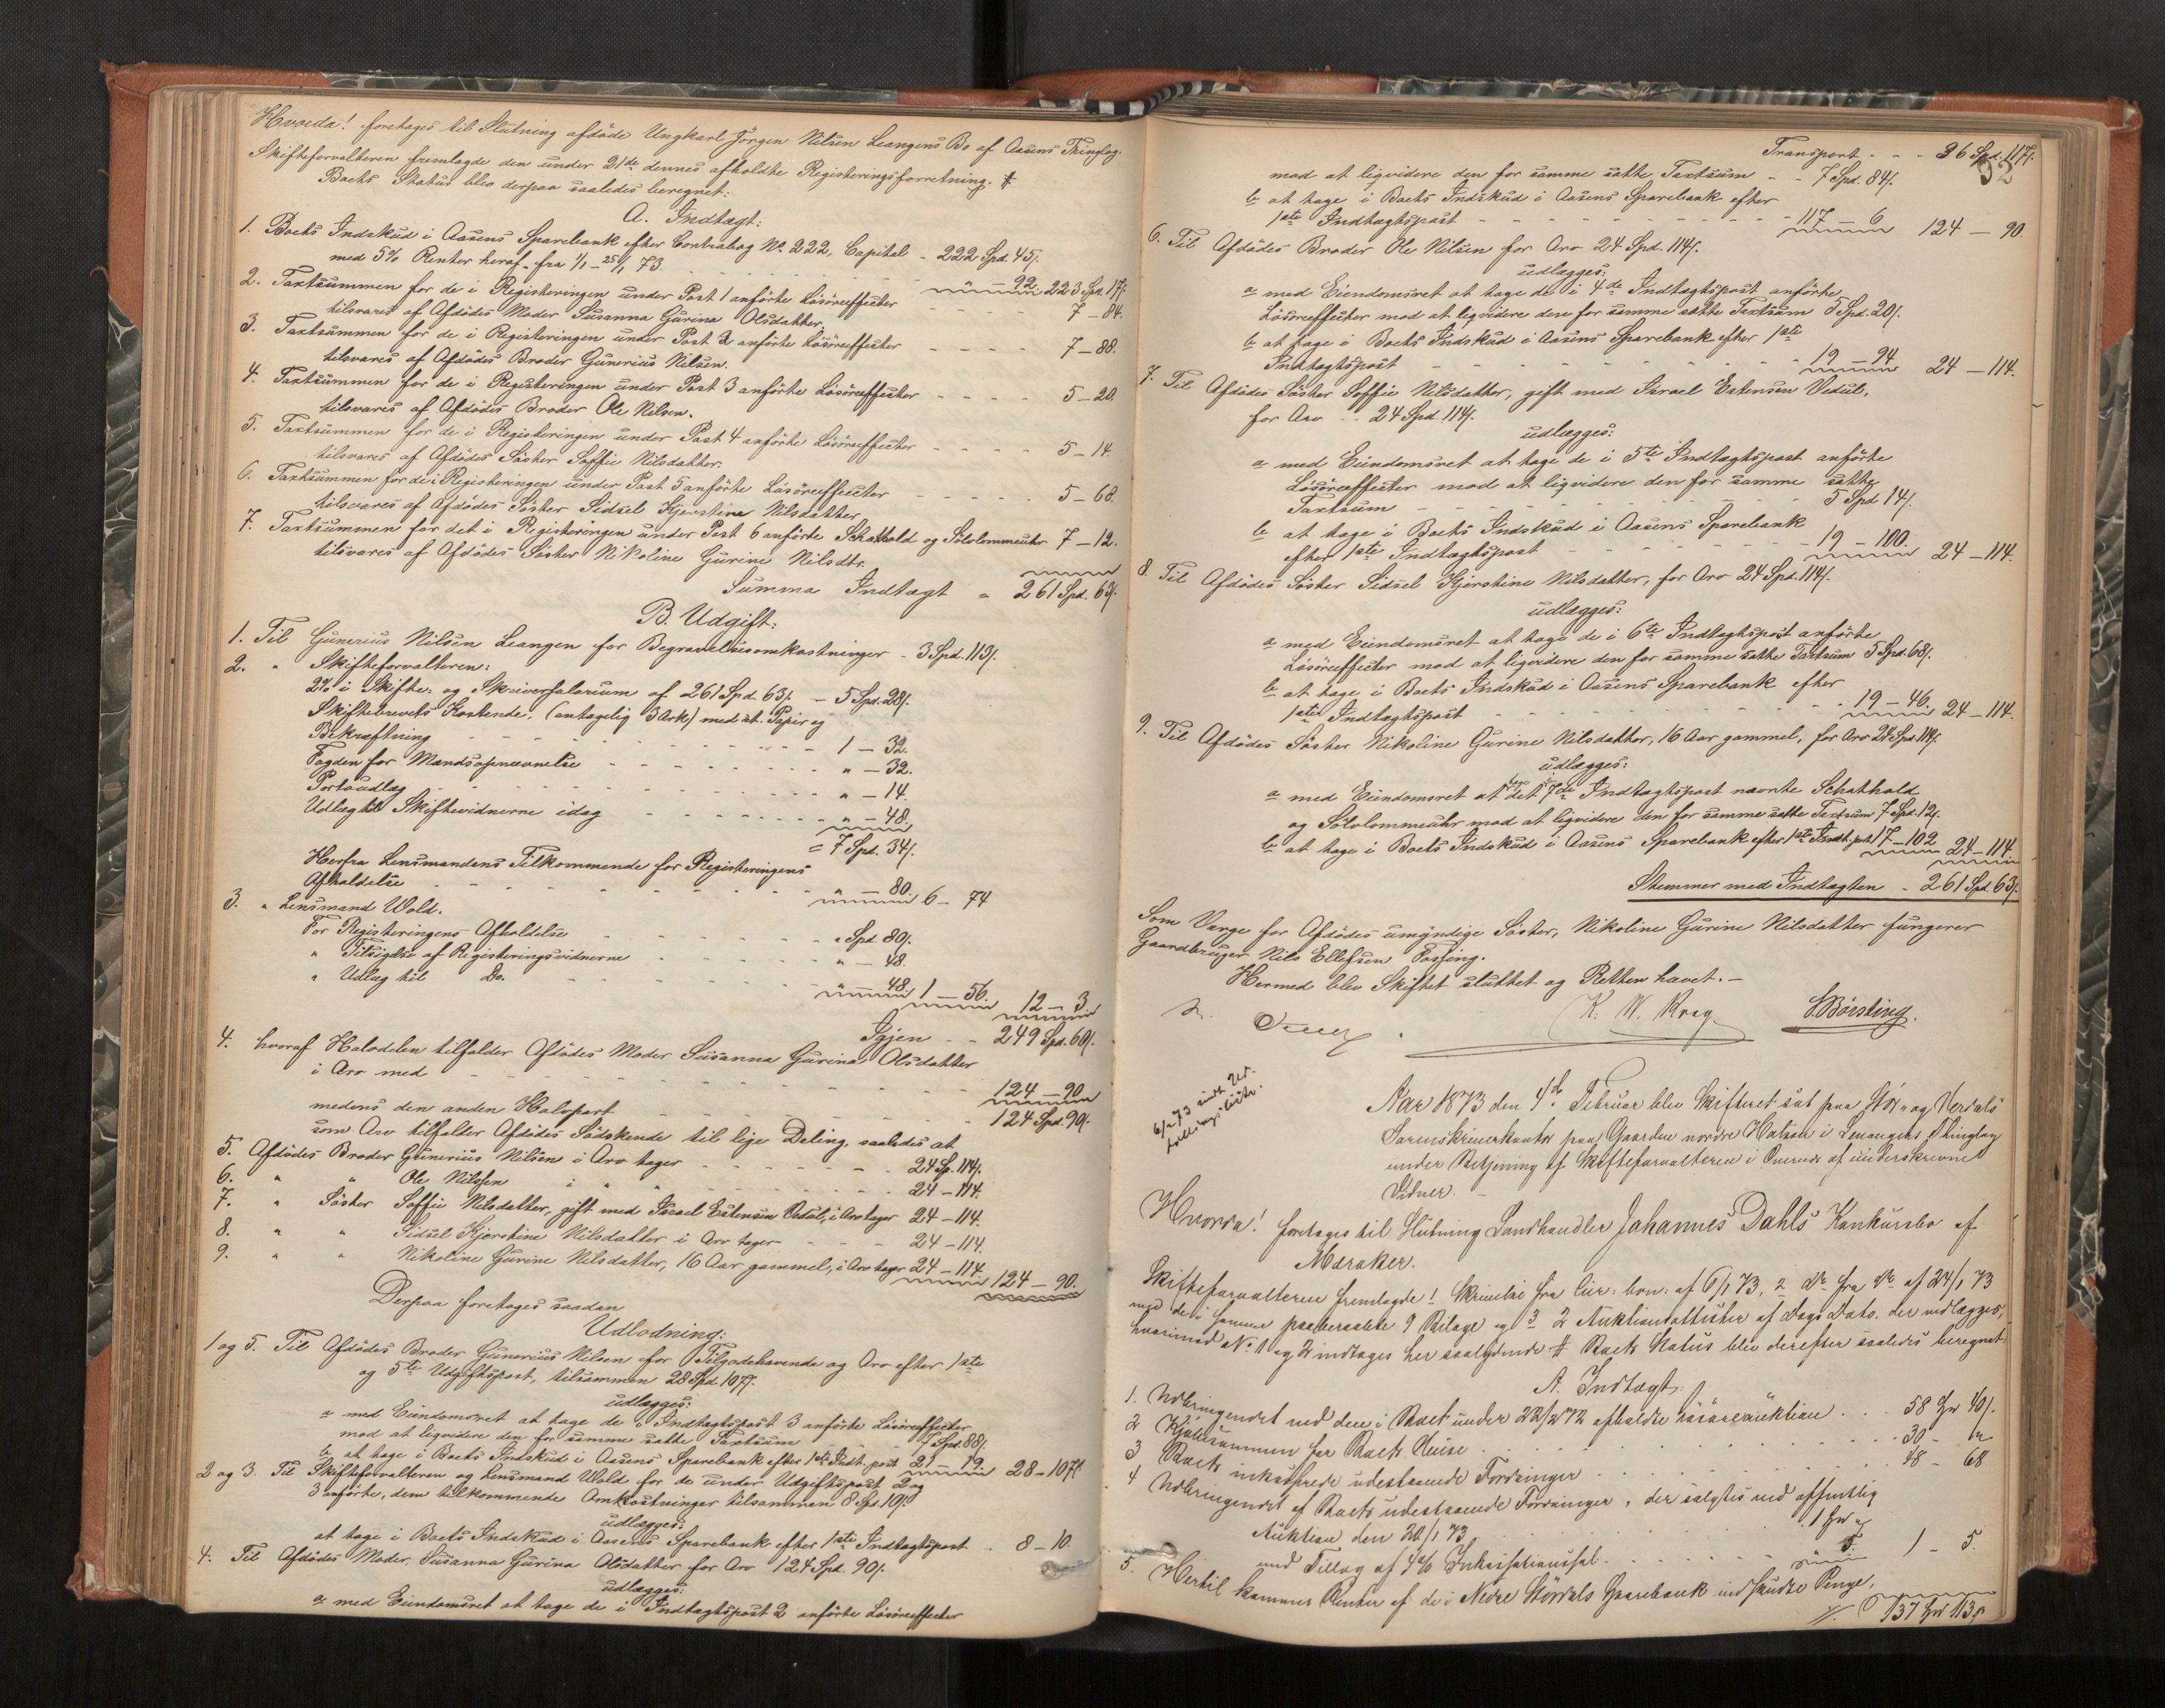 Hvorda! foretoges til Slutning afdöde Ungkarl Jörgen Nilsen Leangens Bo af Aasens Thinglag.
Skifteforvalteren fremlagde den under 21de dennes afholdte Registeringsforretning. #
Boets Status blev derpaa saaledes beregnet:
A. Indtægt:
1. Boets Indskud i Aasens Sparebank efter Contrabog No 222, Capital - 222 Spd. 45 s.
med 5% Renter heraf fra 1/1 - 25/1 73. - - - " - 92. 223 Spd. 17 s.
2. Taxtsummen for de i Registeringen under Post 1 anförte Lösöreeffecter - - - 7 - 84.
tilsvares af Afdödes Moder Susanna Gurina Olsdatter.
3. Taxtsummen for de i Registeringen under Post 2 anförte Lösöreeffecter - - - 7 - 88.
tilsvares af Afdödes Broder Gunerius Nilsen.
4. Taxtsummen for de i Registeringen under Post 3 anförte Lösöreeffecter - - - 5 - 20.
tilsvares af Afdödes Broder Ole Nilsen.
5. Taxtsummen for de i Registeringen under Post 4 anförte Lösöreeffecter - - - 5 - 14.
tilsvares af Afdödes Söster Soffie Nilsdatter.
6. Taxtsummen for de i Registeringen under Post 5 anförte Lösöreeffecter - - - 5 - 68.
tilsvares af Afdödes Söster Sidsel Kjerstine Nilsdatter
7. Taxtsummen for det i Registeringen under Post 6 anförte Schathold og Sölvlommeuhr 7 - 12.
tilsvares af Afdödes Söster Nikoline Gurine Nilsdtr.
Summa Indtægt - 261 Spd. 63 s.
B. Udgift:
1. Til Gunerius Nilsen Leangen for Begravelsesomkostninger - 3 Spd. 113 s.
2. " Skifteforvalteren:
2% i Skifte- og Skriversalarium af 261 Spd. 63 s. - 5 Spd. 28 s.
Skiftebrevets Kostende, (antagelig 3 Ark) med st. Papir og
Bekræftning - - - 1 - 32.
Fogden for Mandsopnævnelse - - - " - 32.
Portoudlæg - - - " - 14.
Udlæg til Skiftevidnerne idag - - - " - 48.
= 7 Spd. 34 s.
Herfra Lensmandens Tilkommende for Registeringens
Afholdelse - - - " - 80. 6 - 74
3. " Lensmand Wold.
For Registeringens Afholdelse - - - " Spd 80 s.
" Tilsigelse af Registeringsvidnerne - - - " - 48.
" Udlæg til Do. - - - " - 48. 1 - 56. 12 - 3
Igjen - - 249 Spd. 60 s.
4. hvoraf Halvdelen tilfalder Afdödes Moder Susanna Gurina Olsdatter
i Arv med - - - 124 - 90
medens den anden Halvpart - - - 124 Spd. 90 s.
som Arv tilfalder Afdödes Södskende til lige Deling, saaledes at
5. Afdödes Broder Gunerius Nilsen i Arv tager - - - 24 Sp. 114 s.
6. " " Ole Nilsen i " " - - - 24 - 114.
7. " Söster Soffie Nilsdatter, gift med Israel Estensen Vedul, i Arv tager 24 - 114.
8. " " Sidsel Kjerstine Nilsdatter i Arv tager - - - 24 - 114.
9. " " Nikoline Gurine Nilsdatter, 16 Aar gammel, i Arv tager 24 - 114. 124 - 90.
Derpaa foretoges saadan
Udlodning:
1 og 5. Til Afdödes Broder Gunerius Nilsen for Tilgodehavende og Arv efter 1ste
og 5te Udgiftspost, tilsammen 28 Spd. 107 s.
udlægges:
a med Eiendomsret at tage de i Indtægtspost 3 anförte Lösöreeffecter
mod at liqvidere den for samme satte Taxtsum - - 7 Spd. 88 s.
b at tage i Boets Indskud i Aasens Sparebank efter 1ste Indt. post 21 - 19. 28 - 107 s.
2 og 3. Til Skifteforvalteren og Lensmand Wold for de under Udgiftspost 2 og
3 anförte, dem tilkommende Omkostninger tilsammen 8 Spd. 10 s.
udlægges:
at tage i Boets Indskud i Aasens Sparebank efter 1ste Indtægtspost . 8 - 10.
4. Til Afdödes Moder, Susanna Gurina Olsdatter for Arv 124 Spd. 90 s.
udlægges:
a med Eiendomsret at tage de i Indtægtspost 2 anförte Lösöreeffecter
Transport - - - 36 Spd. 117 s.
52
mod at liqvidere den for samme satte Taxtsum - - 7 Spd. 84 s.
b at tage i Boets Indskud i Aasens Sparebank efter
1ste Indtægtspost - - - 117 - 6 124 - 90
6. Til Afdödes Broder Ole Nilsen for Arv 24 Spd. 114 s.
udlægges:
a med Eiendomsret at tage de i 4de Indtægtspost anförte
Lösöreeffecter mod at liqvidere den for samme satte Taxtsum 5 Spd. 20 s.
b at tage i Boets Indskud i Aasens Sparebank efter 1ste
Indtægtspost - - - 19 - 94 24 - 114.
7. Til Afdödes Söster Soffie Nilsdatter, gift med Israel Estensen Vedul,
for Arv - - 24 Spd. 114 s.
udlægges:
a med Eiendomsret at tage de i 5te Indtægtspost anförte
Lösöreeffecter mod at liqvidere den for samme satte
Taxtsum - - - 5 Spd 14 s.
b at tage i Boets Indskud i Aasens Sparebank
efter 1ste Indtægtspost - - - 19 - 100. 24 - 114.
8. Til Afdödes Söster Sidsel Kjerstine Nilsdatter, for Arv 24 Spd. 114 s.
udlægges:
a med Eiendomsret at tage de i 6te Indtægtspost anförte
Lösöreeffecter mod at liqvidere den for samme satte Taxtsum 5 Spd. 68 s.
b at tage i Boets Indskud i Aasens Sparebank efter
1ste Indtægtspost - - - 19 - 46. 24 - 114.
9. Til Afdödes Söster Nikoline Gurine Nilsdatter, 16 Aar gammel, for Arv 24 Spd. 114 s.
udlægges:
a med Eiendomsret at tage det i 7de Indtægtspost nævnte Schathold
og Sölvlommeuhr mod at liqvidere den for samme satte Taxtsum 7 Spd. 12 s.
b at tage i Boets Indskud i Aasens Sparebank efter 1ste Indt. post 17 - 102 24 - 114
Stemmer med Indtægten - 261 Spd. 63 s.
Som Værge for Afdödes umyndige Söster, Nikoline Gurine Nilsdatter fungerer
Gaardbruger Nils Ellefsen Fossing.
Hermed blev Skiftet sluttet og Retten hævet. -
K. M. Krag. S. Börsting.
6/2 73
Aar 1873 den 4de Februar blev Skifteret sat paa Stör- og Værdals
Sorenskriverkontor paa Gaarden nordre Halsan i Levangens Thinglag
under Betjening af Skifteforvalteren i Overvær af underskrevne
Vidner. -
Hvorda! foretoges til Slutning Landhandler Johannes Dahls Konkursbo af
Meraker.
Skifteforvalteren fremlagde! Skrivelse fra Cur: bon: af 6/1 73, 2 do fra do af 24/1 73
med de i samme paaberaabte 9 Bilage og 3 2 Auktionsattester af Dags Dato, der vedlægges,
hvorimod No. 1 og 2 indtages her saalydende # Boets Status blev derefter saaledes beregnet:
A. Indtægt:
1. Udbringendet ved den i Boet under 22/2 72 afholdte Lösöreauktion . . . 58 Spd 40 s.
2 Kjöbesummen for Boets Huse . . . 30 - "
3 Boets inkasserede udestaaende Fordringer . . . 48 - 68
4 Udbringendet af Boets udestaaende Fordringer, der solgtes ved offentlig
Auktion den 20/1 73 . . . 1 Spd "
med Tillæg af 4% Inkassationssal. . . . 5. 1 - 5.
5. Hertil kommer Renter af de i Nedre Stördals Sparebank indskudte Penge,
137 Spd 113 s